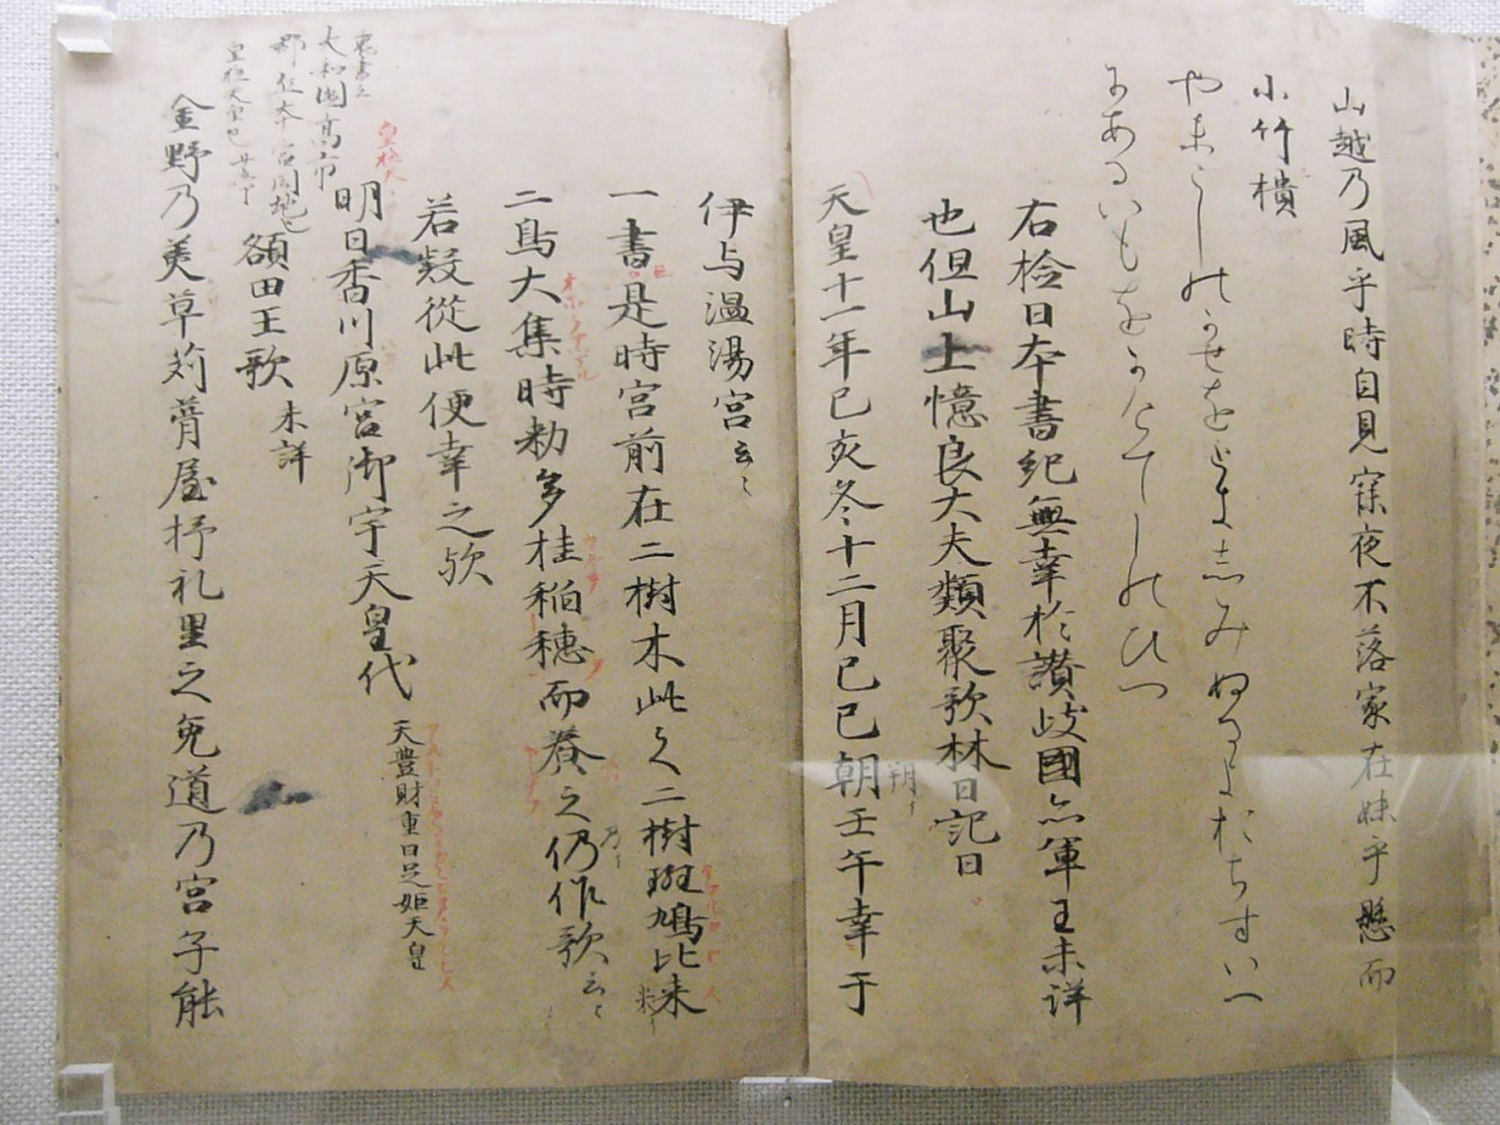 山越乃風乎時自見寐夜不落家在妹乎懸而
小竹樻
やまこしのかせをときしみぬるよおちすいへ
にあるいもをかけてしのひつ
右検日本書紀無幸於讃岐國亦軍王未詳
也但山上憶良大夫類聚歌林曰記曰
天皇十一年己亥冬十二月己巳朝壬午幸于
朔
伊与温湯宮云々
一書是時宮前在二樹木此之二樹斑鳩比来
米
二鳥大集時勅多桂稲穂而養之仍作歌云々
乃
若疑從此便幸之歟
明日香川原宮御宇天皇代 天豊財重日足姫天皇
皇極天
裏書云
大和國高市
額田王歌 未詳
金野乃美草苅葺屋杼礼里之兔道乃宮子能